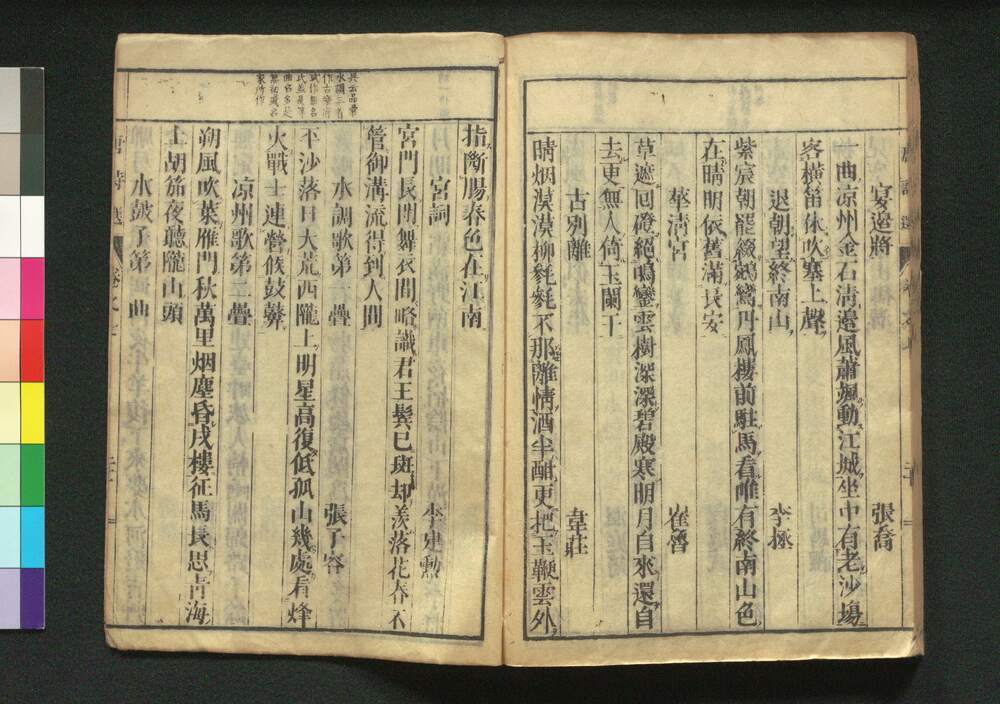 宴邊將　張喬
一曲凉州金石清邊風蕭颯動江城坐中有老沙場
客橫笛休吹塞上聲
退朝望終南山　李拯
紫宸朝罷綴鵷鸞丹鳳樓前駐馬看唯有終南山色
在晴明依舊滿長安
華清宮　崔魯
草遮回磴絕鳴鑾雲樹深深碧殿寒明月自來還自
去更無人倚玉闌干
古別離　韋莊
晴烟漠漠柳毿毿不那離情酒半酣更把玉鞭雲外
指斷腸春色在江南
宮詞　李建勳
宮門長閉舞衣閒略識君王鬂已斑却羨落花春不
管御溝流得到人間
水調歌第一疊　張子容
平沙落日大荒西隴上明星高復低孤山幾處看烽
火戰士連營候鼓鼙
凉州歌第二疊
朔風吹葉雁門秋萬里烟塵昏戍樓征馬長思靑海
上胡笳夜聽隴山頭
水鼓子第一曲
唐詩選　卷之七